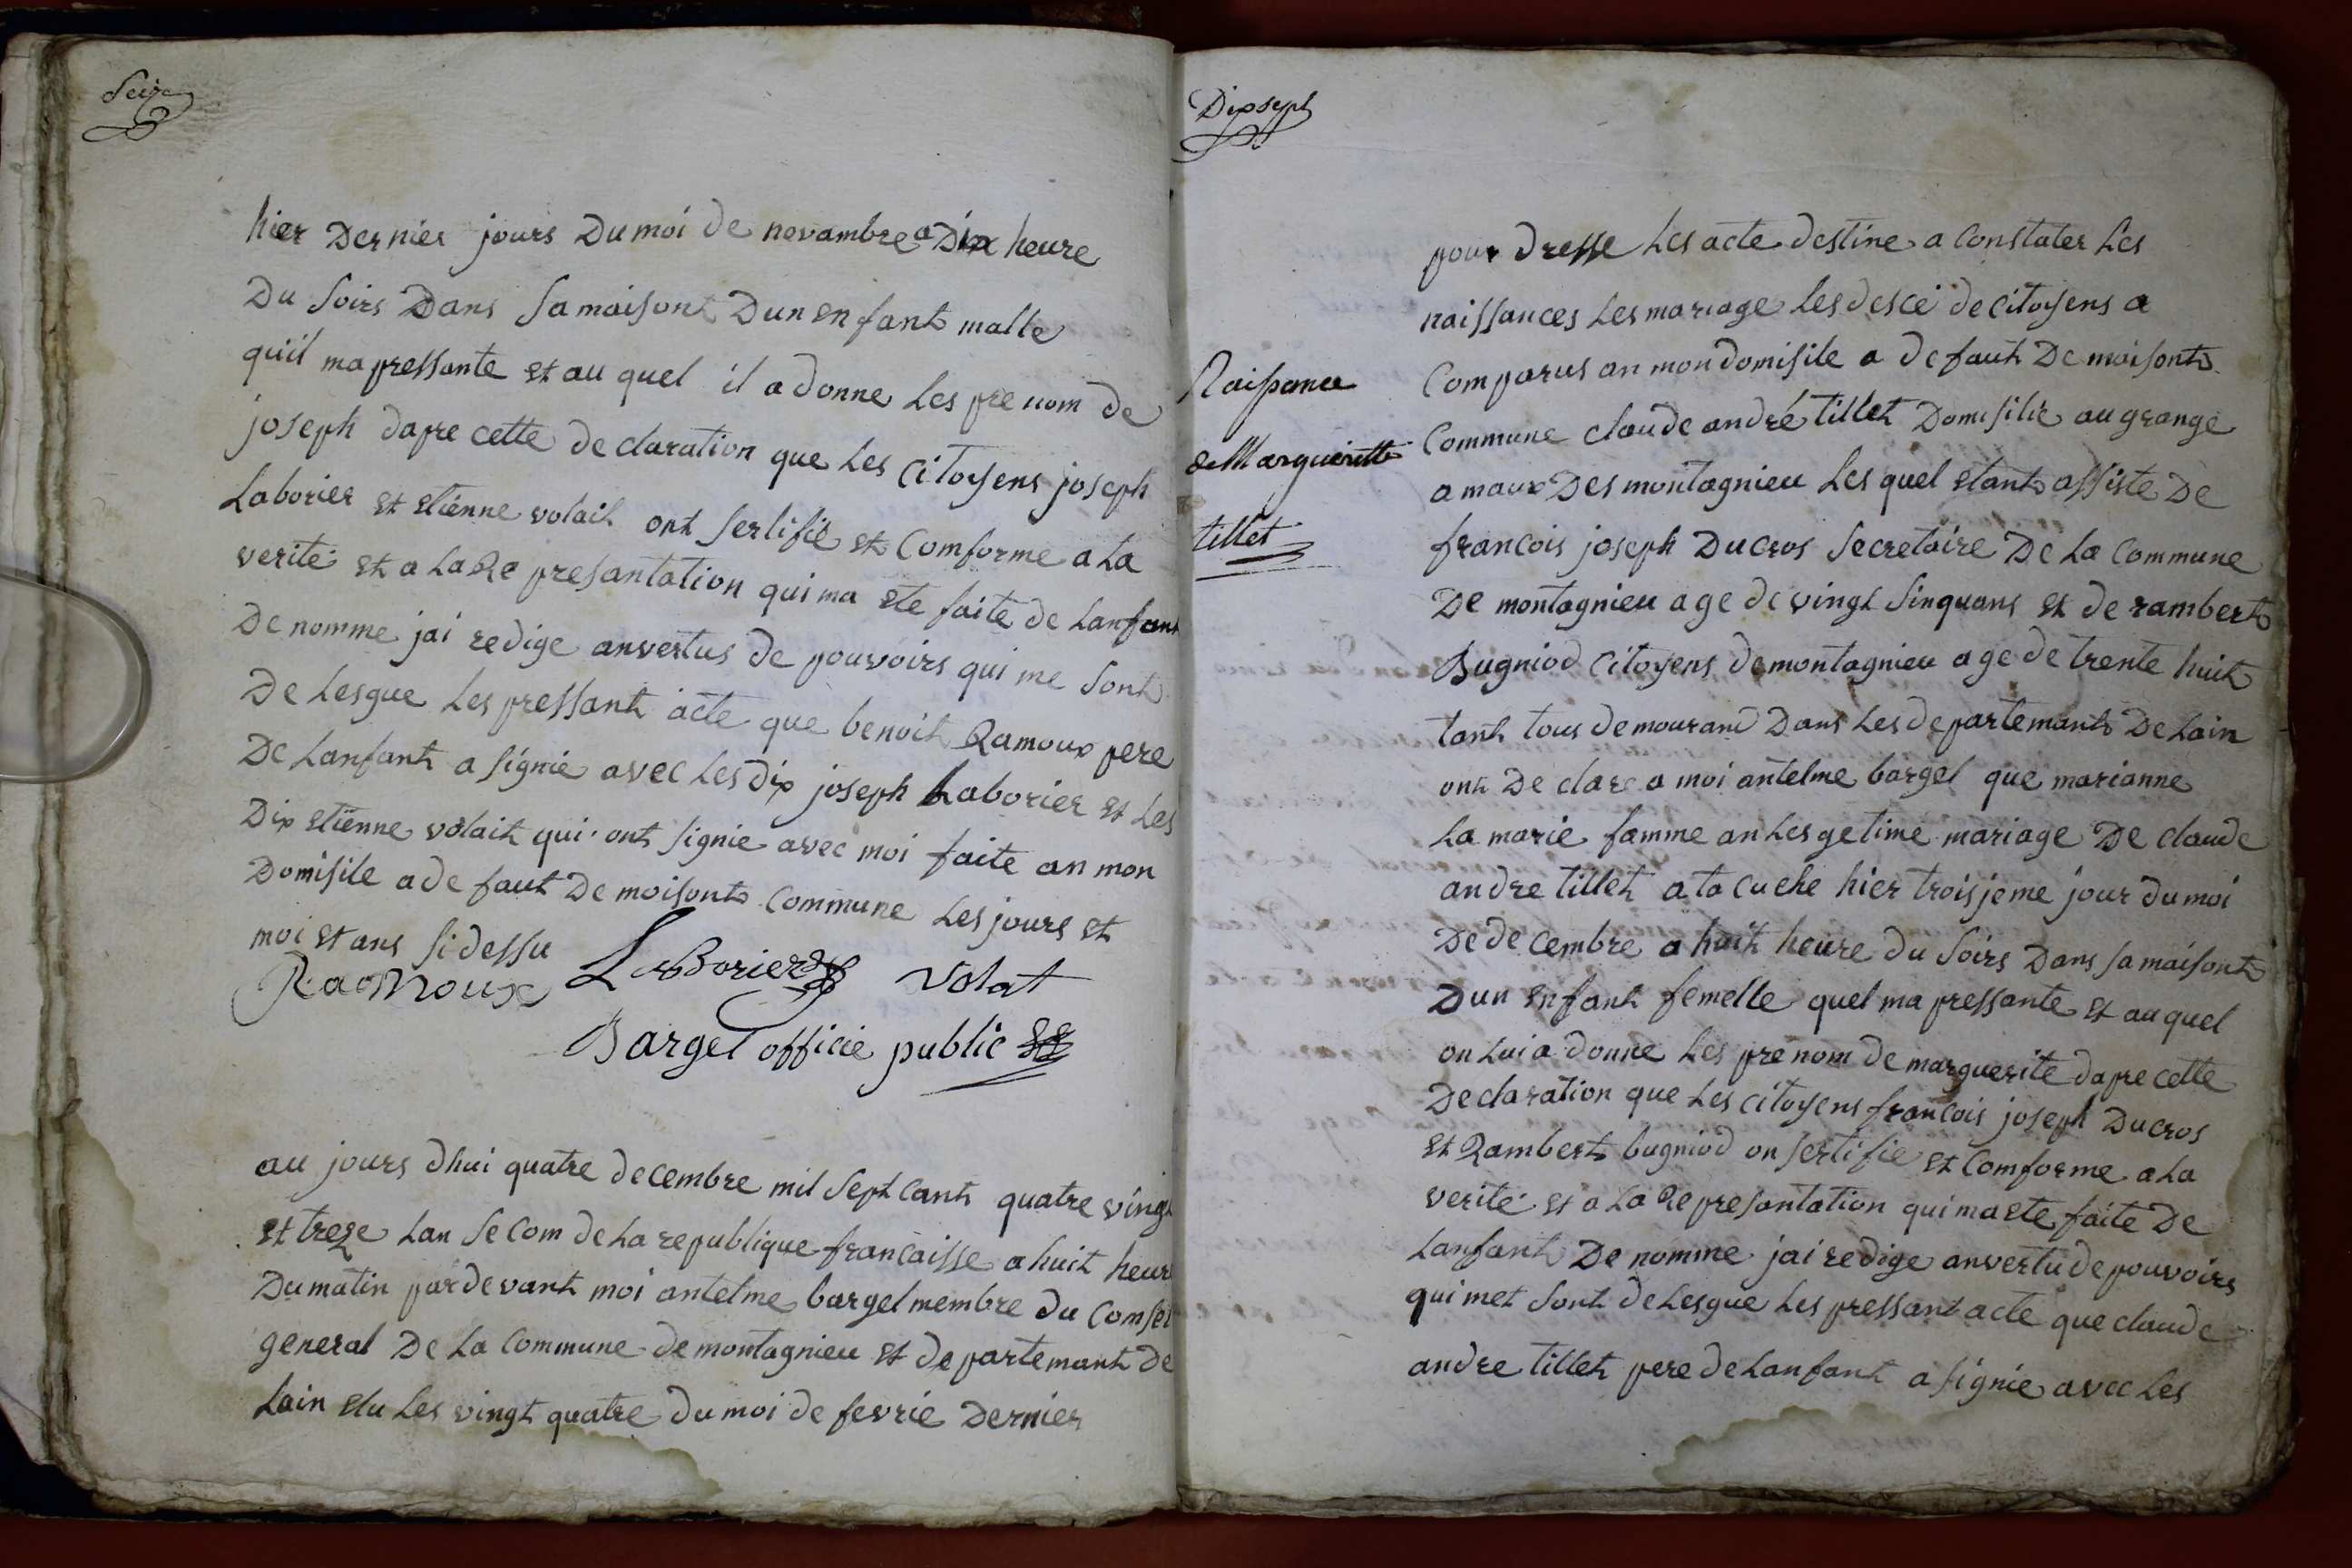 Seize
hier Dernier jours Du moi de novambre a Dix heure
Du soirs Dans sa maisont Dun enfant malle
quil ma pressante et au quel il a donne les pre nom de
joseph dapre cette de claration que les citoyens joseph
Laborier et etienne volait ont sertifie et comforme a la
verite et a la Re presantation qui ma ete faite de lanfant
De nomme jai redige anvertus de pouvoirs qui me sont
De lesgue les pressant acte que benoit Ramoux pere
De lanfant a signie avec les dix joseph Laborier et les
Dix etienne volait qui ont signie avec moi faite an mon
Domisile a de faut De moisont commune les jours et
moi et ans si dessu
Ramoux Laborier Volat
Bargel officie public
au jours dhui quatre decembre mil sept cant quatre vingt
et treze lan se com de la republique francaisse a huit heure
Du matin par de vant moi antelme bargel membre du Consei
general De la commune de montagnieu et de partemant de
Lain elu les vingt quatre du moi de fevrie Dernier
Dixsept
Naissance
de Margueritte
tillet
pour dresse les acte destine a constater les
naissances les mariage les desce de citoyens a
comparus an mon domisile a de faut De moisont
commune claude andré tillet Domisilie au grange
a maux Des montagnieu les quel etant assiste De
francois joseph Ducros secretaire De la commune
De montagnieu age de vingt sinquans et de rambert
Bugniod citoyens de montagnieu age de trente huit
tant tous de mourand Dans les de partemant De lain
ont De clare a moi antelme bargel que marianne
la marie famme an les getime mariage De claude
andre tillet a ta cuche hier troisjeme jour du moi
De de cembre a huit heure du soirs Dans sa maisont
Dun enfant femelle quel ma pressante et au quel
on lui a donne les pre nom de marguerite dapre cette
Declaration que les citoyens francois joseph Ducros
et Rambert bugniod on sertifie et comforme a la
verite et a la Re presantation qui ma ete faite De
lanfant De nomme jai redige anvertu de pouvoirs
qui met sont de lesgue les pressant acte que claude
andre tillet pere de lanfant a signie avec les